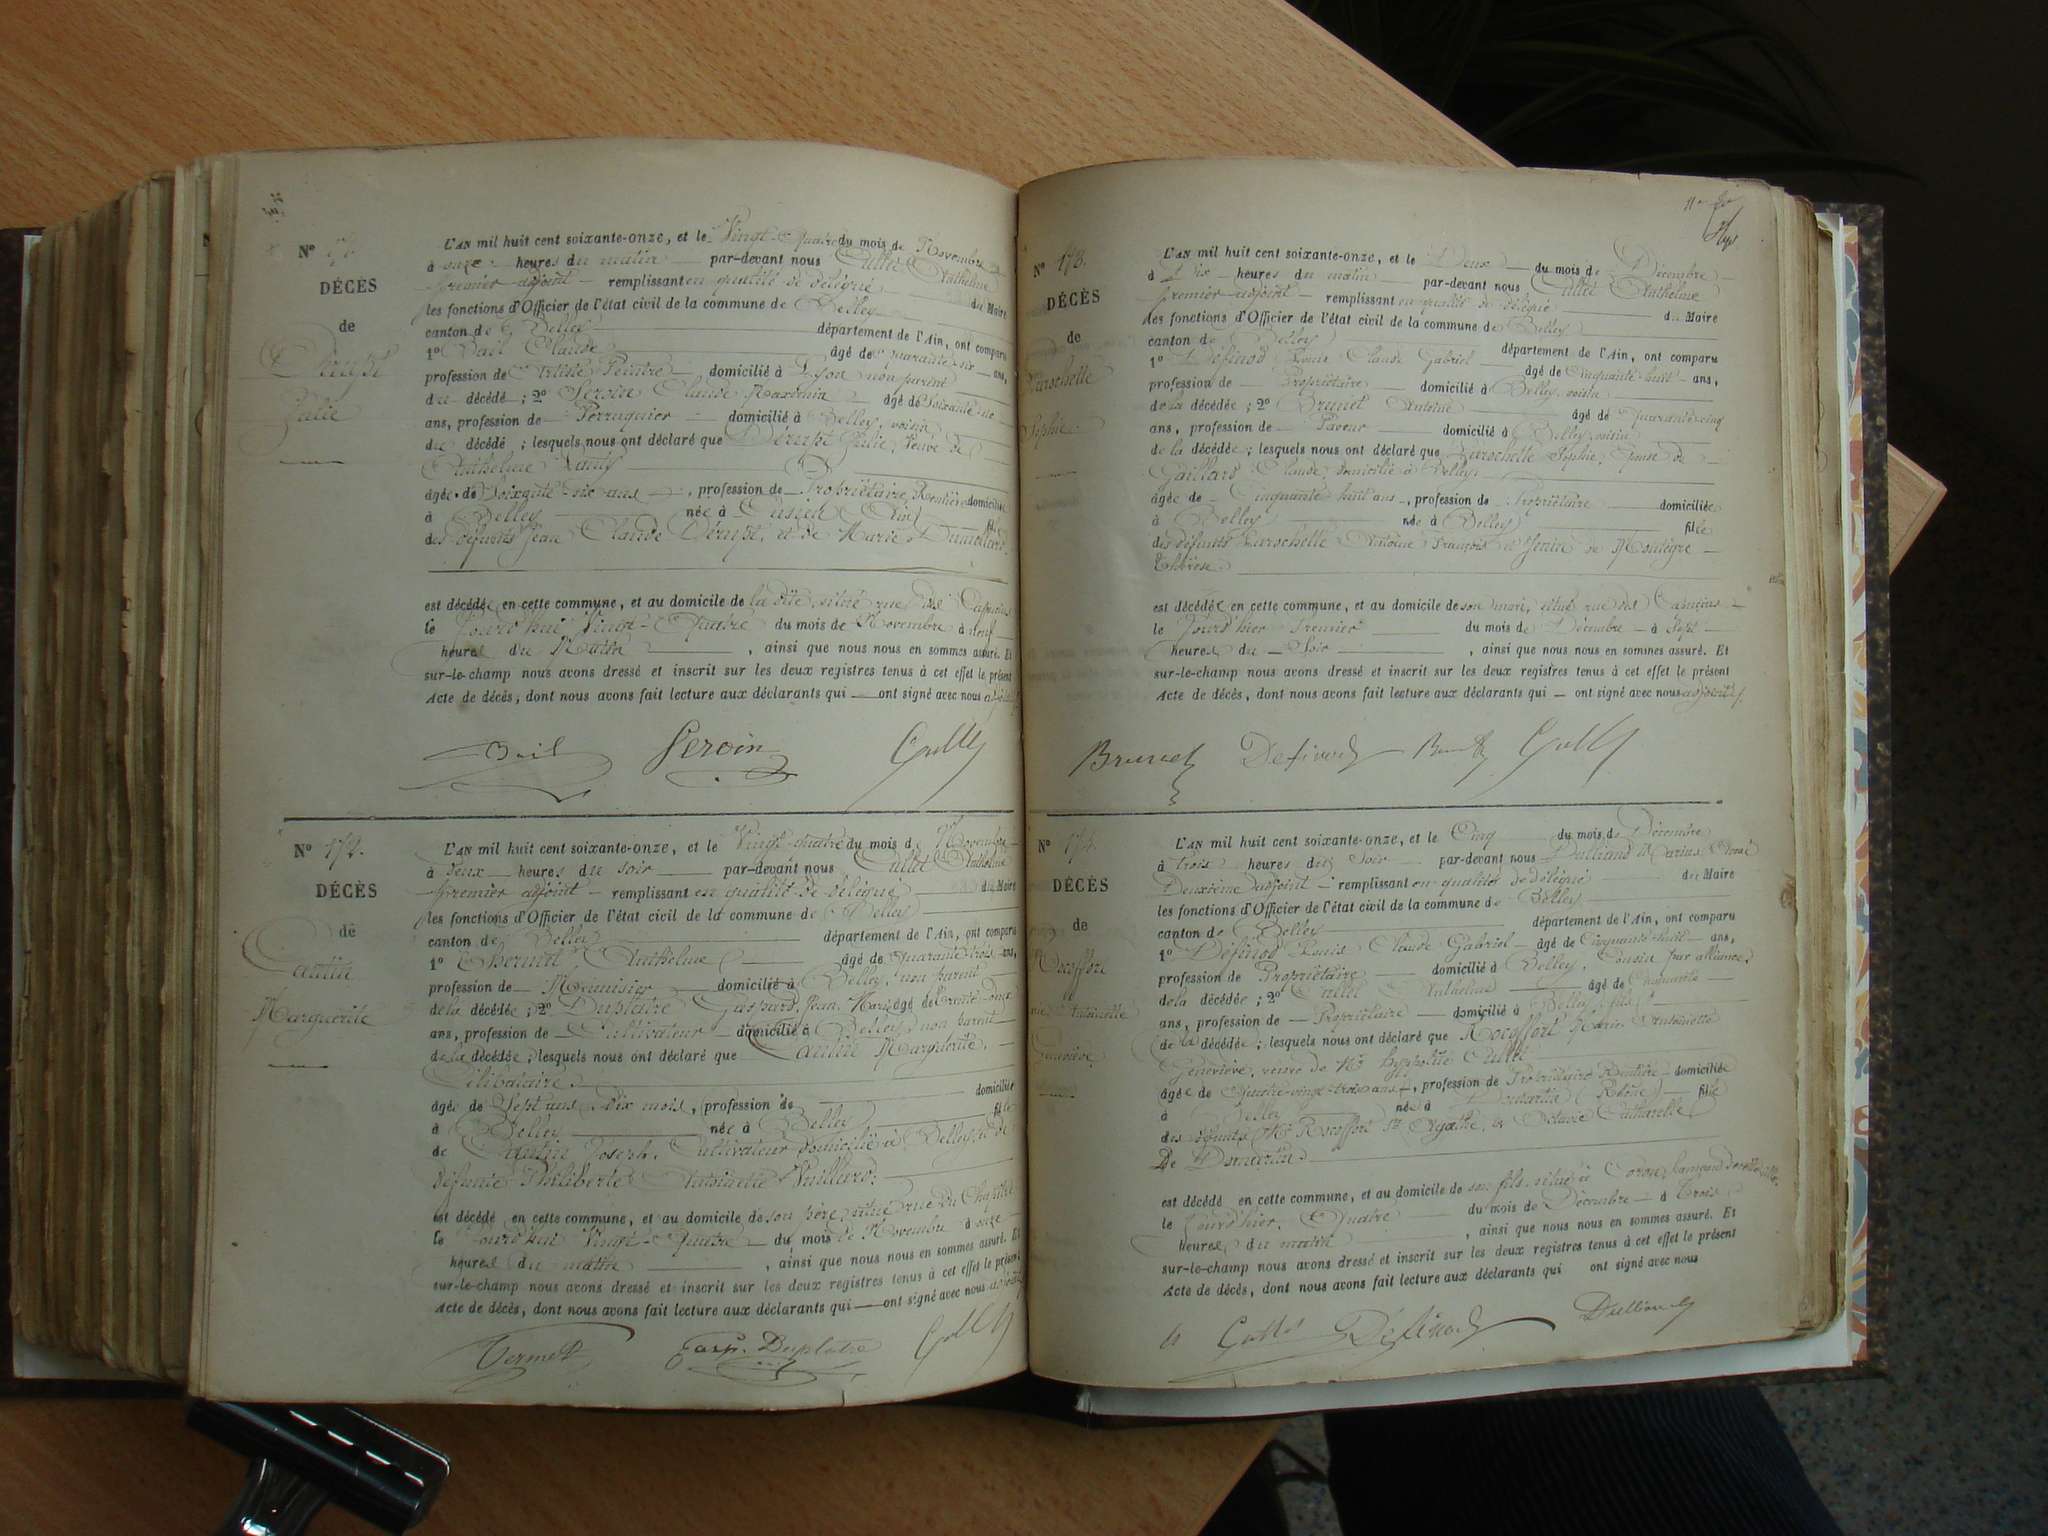 N°
DÉCÈS
de
Julie
L'AN mil huit cent soixante-onze, et le Vingt-Quatre du mois de Novembre
à onze heures du matin par-devant nous Cullet Anthelme
premier adjoint remplissant en qualité de délégué du Maire
les fonctions d'Officier de l'état civil de la commune de Belley
canton de Belley département de l'Ain, ont comparu
1° Bail Claude âgé de quarante six ans,
profession de Artiste Peintre domicilié à Lyon non parent
du décédé ; 2° Geroin Claude âgé de Soixante
ans, profession de Perruquier domicilié à Belley, voisin
du décédé ; lesquels nous ont déclaré que Julie, Veuve de
Anthelme
âgée de Soixante six ans, profession de Propriétaire Rentière domiciliée
à Belley née à Cuzieu (Ain) fille
des défunts Jean Claude et de Marie
est décédée en cette commune, et au domicile de la dite, situé rue des Capucins
le Jourd'hui Vingt-Quatre du mois de Novembre à neuf
heures du Matin, ainsi que nous nous en sommes assuré. Et
sur-le-champ nous avons dressé et inscrit sur les deux registres tenus à cet effet le présent
Acte de décès, dont nous avons fait lecture aux déclarants qui — ont signé avec nous
Bail Geroin Cullet
N° 172.
DÉCÈS
de
Cantin
Marguerite
L'AN mil huit cent soixante-onze, et le Vingt-quatre du mois de Novembre
à Deux heures du soir par-devant nous Cullet Anthelme
premier adjoint remplissant en qualité de délégué du Maire
les fonctions d'Officier de l'état civil de la commune de Belley
canton de Belley département de l'Ain, ont comparu
1° Anthelme âgé de quarante trois ans,
profession de Menuisier domicilié à Belley, non parent
de la décédée ; 2° Duplatre Gaspard Jean Marie âgé de trente deux
ans, profession de Cultivateur domicilié à Belley non parent
de la décédée ; lesquels nous ont déclaré que Cantin Marguerite,
Célibataire
âgée de Sept ans Dix mois, profession de domiciliée
à Belley née à Belley fille
de Cantin Joseph, Cultivateur domicilié à Belley, et de
défunte Philiberte Antoinette
est décédé en cette commune, et au domicile de son père, situé rue du Chapitre
le Jourd'hui Vingt-Quatre du mois de Novembre à onze
heures du matin, ainsi que nous nous en sommes assuré. Et
sur-le-champ nous avons dressé et inscrit sur les deux registres tenus à cet effet le présent
Acte de décès, dont nous avons fait lecture aux déclarants qui — ont signé avec nous
Gasp. Duplatre Cullet
N° 173.
DÉCÈS
de
Sophie
L'AN mil huit cent soixante-onze, et le Deux du mois de Décembre
à Dix heures du matin par-devant nous Cullet Anthelme
premier adjoint remplissant en qualité de délégué du Maire
les fonctions d'Officier de l'état civil de la commune de Belley
canton de Belley département de l'Ain, ont comparu
1° Définod Louis Claude Gabriel âgé de Cinquante huit ans,
profession de Propriétaire domicilié à Belley, voisin
de la décédée ; 2° Brunet Antoine âgé de quarante cinq
ans, profession de Paveur domicilié à Belley voisin
de la décédée ; lesquels nous ont déclaré que Sophie, épouse de
Gaillard Claude, domicilié à Belley,
âgée de Cinquante huit ans, profession de Propriétaire domiciliée
à Belley née à Belley fille
des défunts Antoine François et
Thérèse.
est décédée en cette commune, et au domicile de son mari, situé rue des Capucins
le Jourd'hier Premier du mois de Décembre à Sept
heures du Soir, ainsi que nous nous en sommes assuré. Et
sur-le-champ nous avons dressé et inscrit sur les deux registres tenus à cet effet le présent
Acte de décès, dont nous avons fait lecture aux déclarants qui — ont signé avec nous adjoint.
Brunet Definod Cullet
N° 174.
DÉCÈS
de
Rocoffort
Marie Antoinette
Geneviève
L'AN mil huit cent soixante-onze, et le Cinq du mois de Décembre
à trois heures du Soir par-devant nous Dulliand Marius
Deuxième adjoint remplissant en qualité de délégué du Maire
les fonctions d'Officier de l'état civil de la commune de Belley
canton de Belley département de l'Ain, ont comparu
1° Définod Louis Claude Gabriel âgé de Cinquante-huit ans,
profession de Propriétaire domicilié à Belley, Cousin par alliance
de la décédée ; 2° Cullet Anthelme âgé de Cinquante
ans, profession de Propriétaire domicilié à Belley, fils
de la décédée ; lesquels nous ont déclaré que Rocoffort Marie Antoinette
Geneviève, veuve de Mr Hypolite Cullet
âgée de Quatre-vingt-trois ans, profession de Propriétaire Rentière domiciliée
à Belley née à (Rhône) fille
des défunts Mr Rocoffort
De
est décédé en cette commune, et au domicile de son fils, situé à
le Jourd'hier, Quatre du mois de Décembre à Trois
heures du matin, ainsi que nous nous en sommes assuré. Et
sur-le-champ nous avons dressé et inscrit sur les deux registres tenus à cet effet le présent
Acte de décès, dont nous avons fait lecture aux déclarants qui ont signé avec nous
Cullet Définod Dulliand